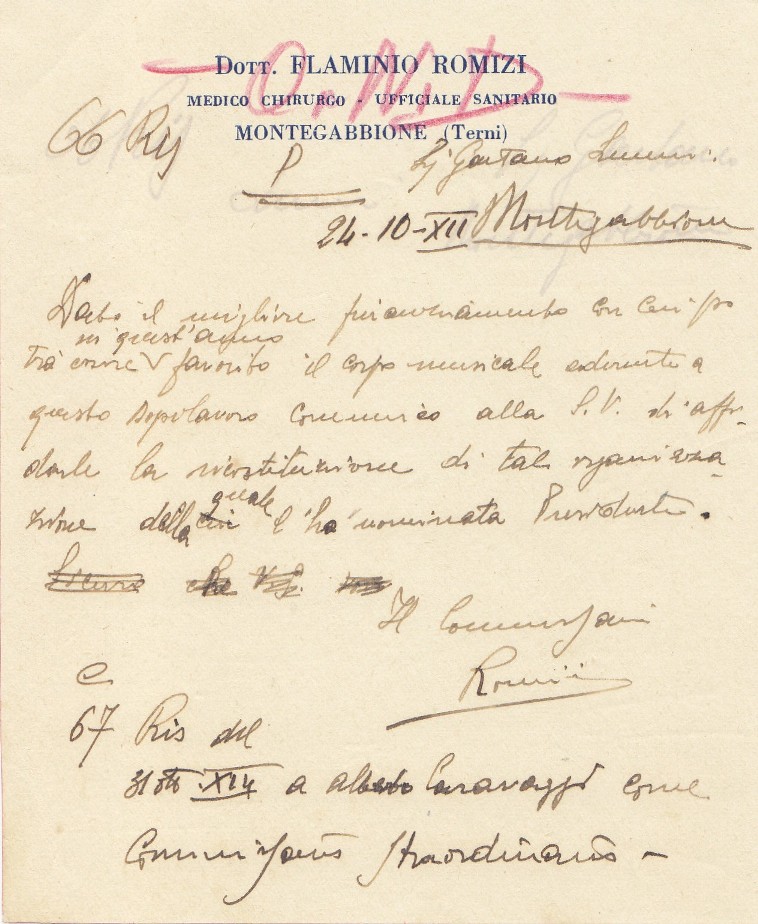 DOTT. FLAMINIO ROMIZI
MEDICO CHIRURGO - UFFICIALE SANITARIO
MONTEGABBIONE (Terni)
O.N.D.
66 Ris
P
Sig Gaetano
24-10-XII Montegabbione
Dato il migliore funzionamento con cui
in quest'anno
favorito il corpo musicale aderente a
questo Dopolavoro comunico alla S.V. di affi-
darle la ricostituzione di tale organizza-
zione della quale l'ha nominata Presidente.
Il Commissario
Romizi
C
67 Ris del
31 ott XIV a Alberto Caravaggi come
Commissario Straordinario -